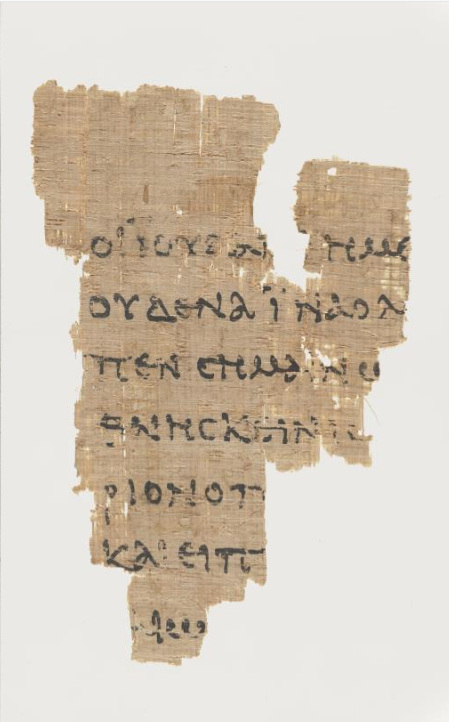 ΟΙ ΙΟΥΔΑΙ ΗΜΕ
ΟΥΔΕΝΑ ΙΝΑ Ο Λ
ΠΕΝ CΗΜΑΙΝω
ΘΝΗCΚΕΙΝ ΙC
ΡΙΟΝ Ο Π
ΚΑΙ ΕΙΠ
ΑΙω